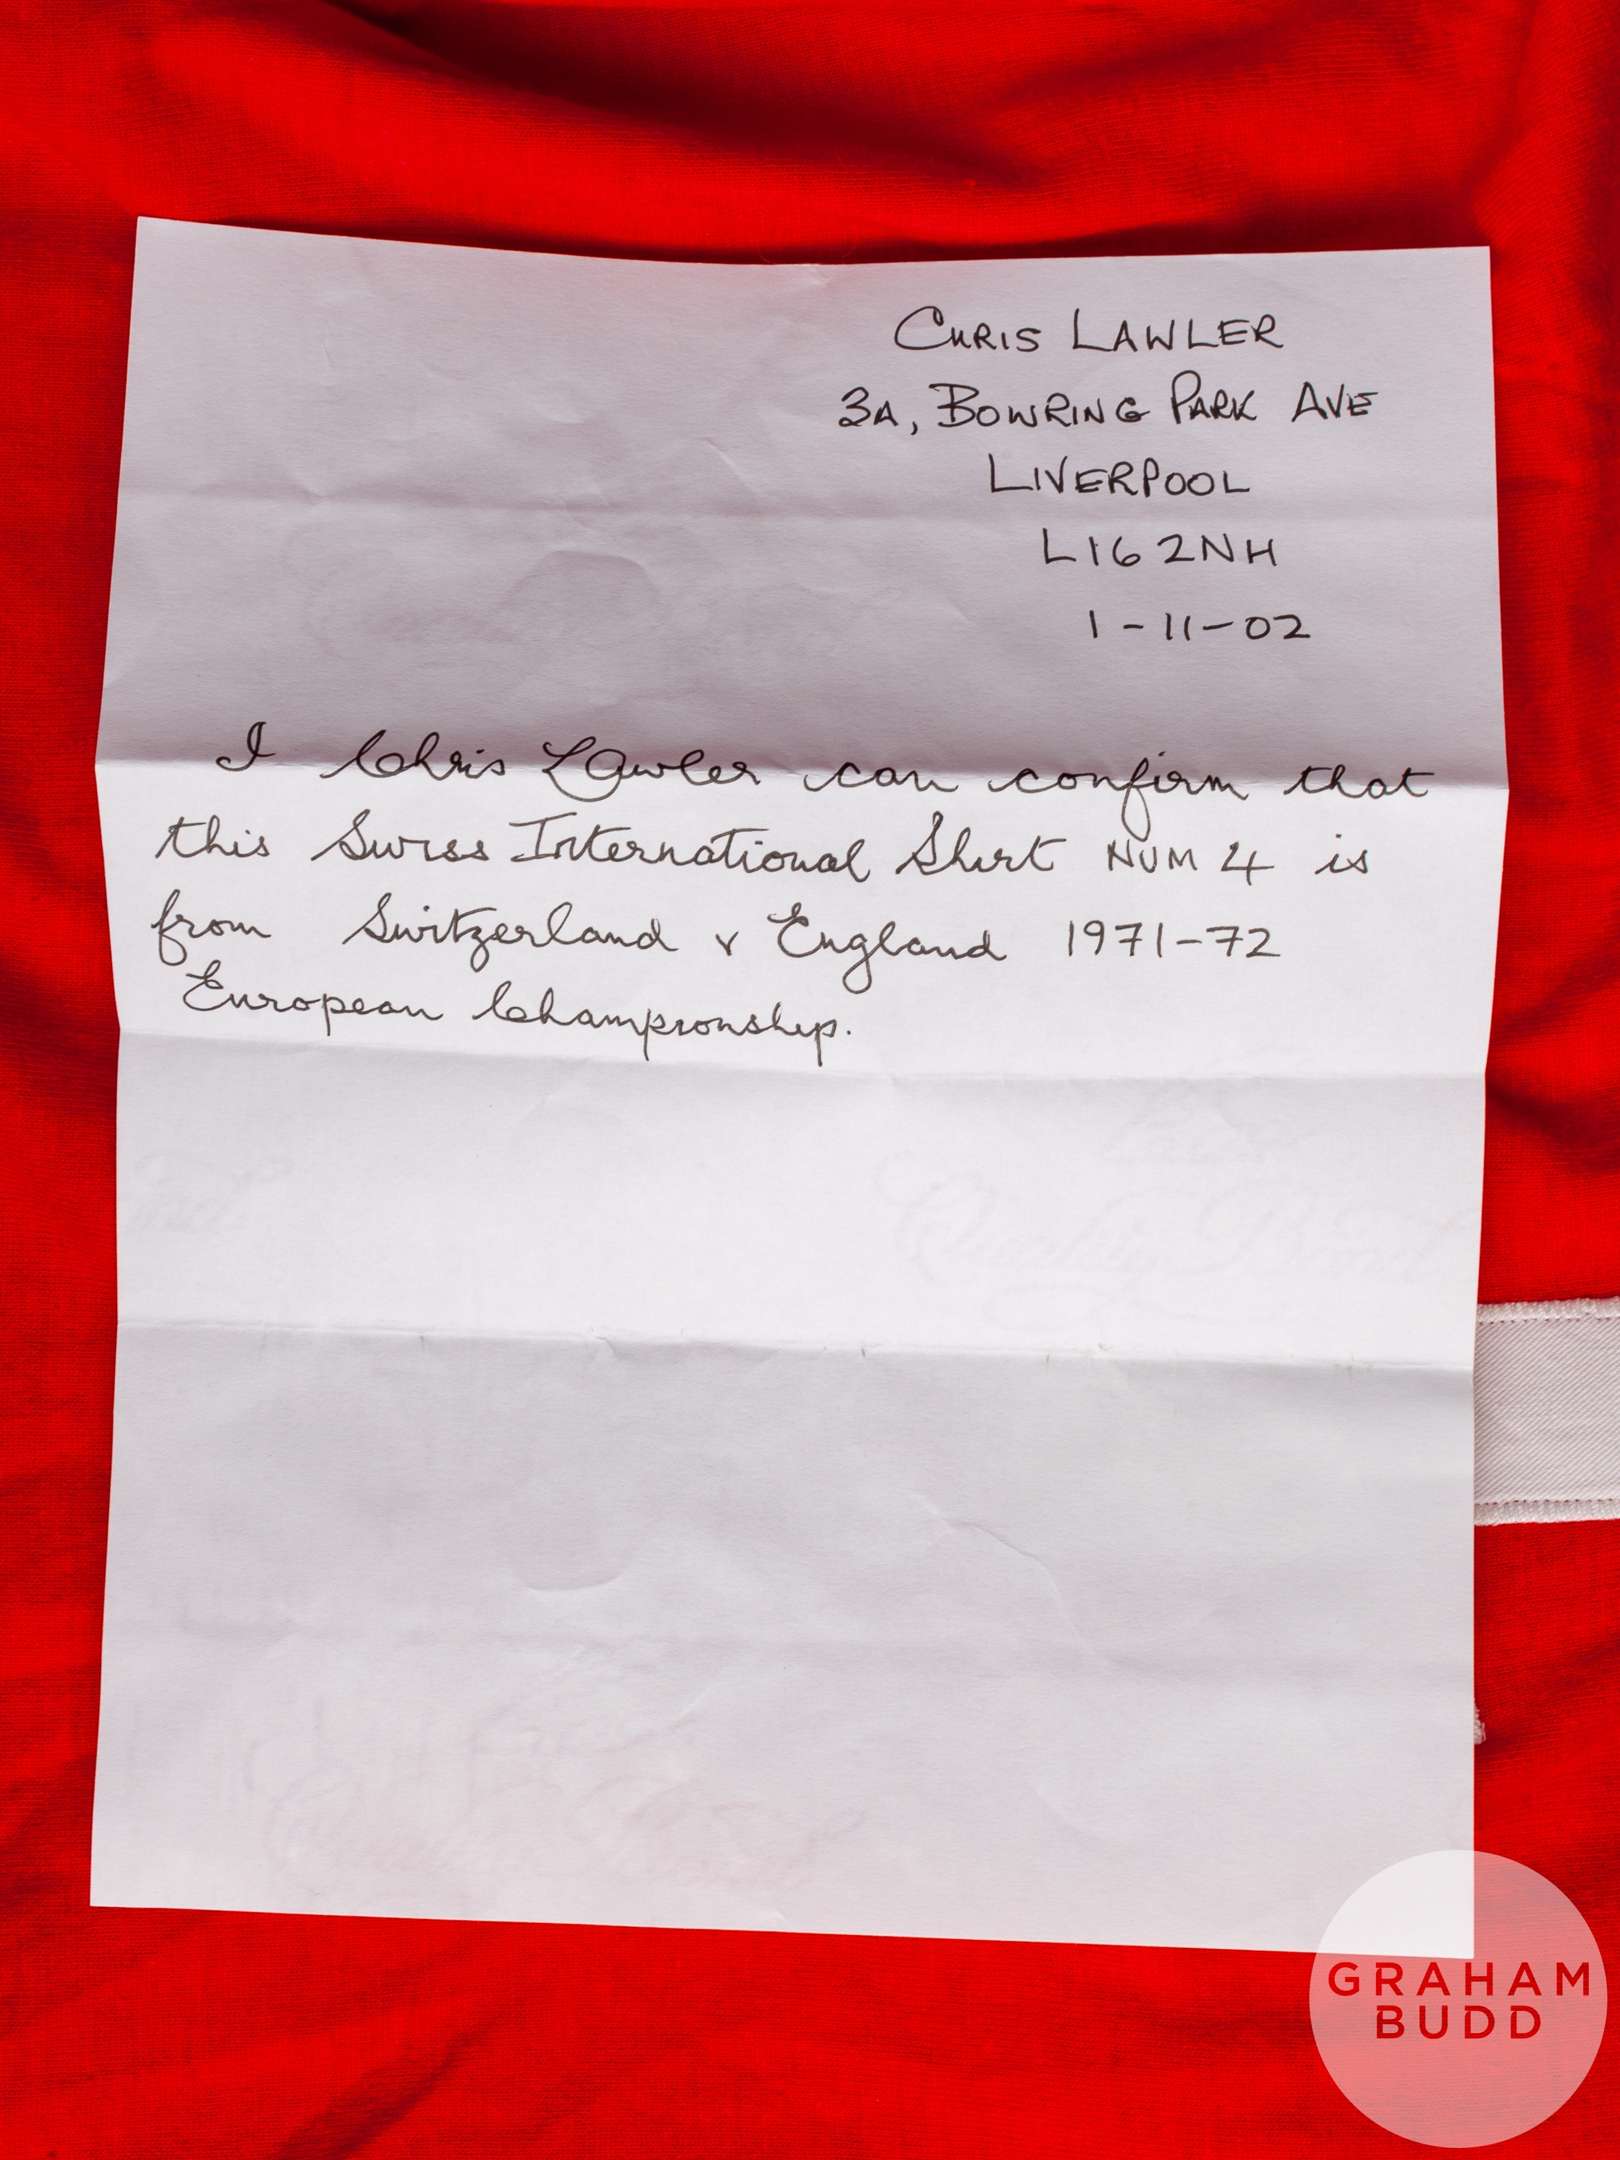 CHRIS LAWLER
3A, BOWRING PARK AVE
LIVERPOOL
L16 2NH
1-11-02
I Chris Lawler can confirm that
this Swiss International Shirt NUM 4 is
from Switzerland v England 1971-72
European Championship.
Quality Bond
GRAHAM
BUDD